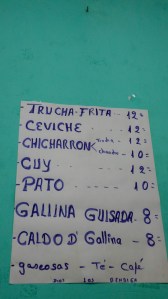 - TRUCHA-FRITA... 12=
- CEVICHE... 12=
- CHICHARRON trucha - 12=
chancho - 10=
- CUY.... 12=
- PATO.... 10=
GALLINA GUISADA. 8=
- CALDO D' Gallina - 8=
- gaseosas - Té - Café